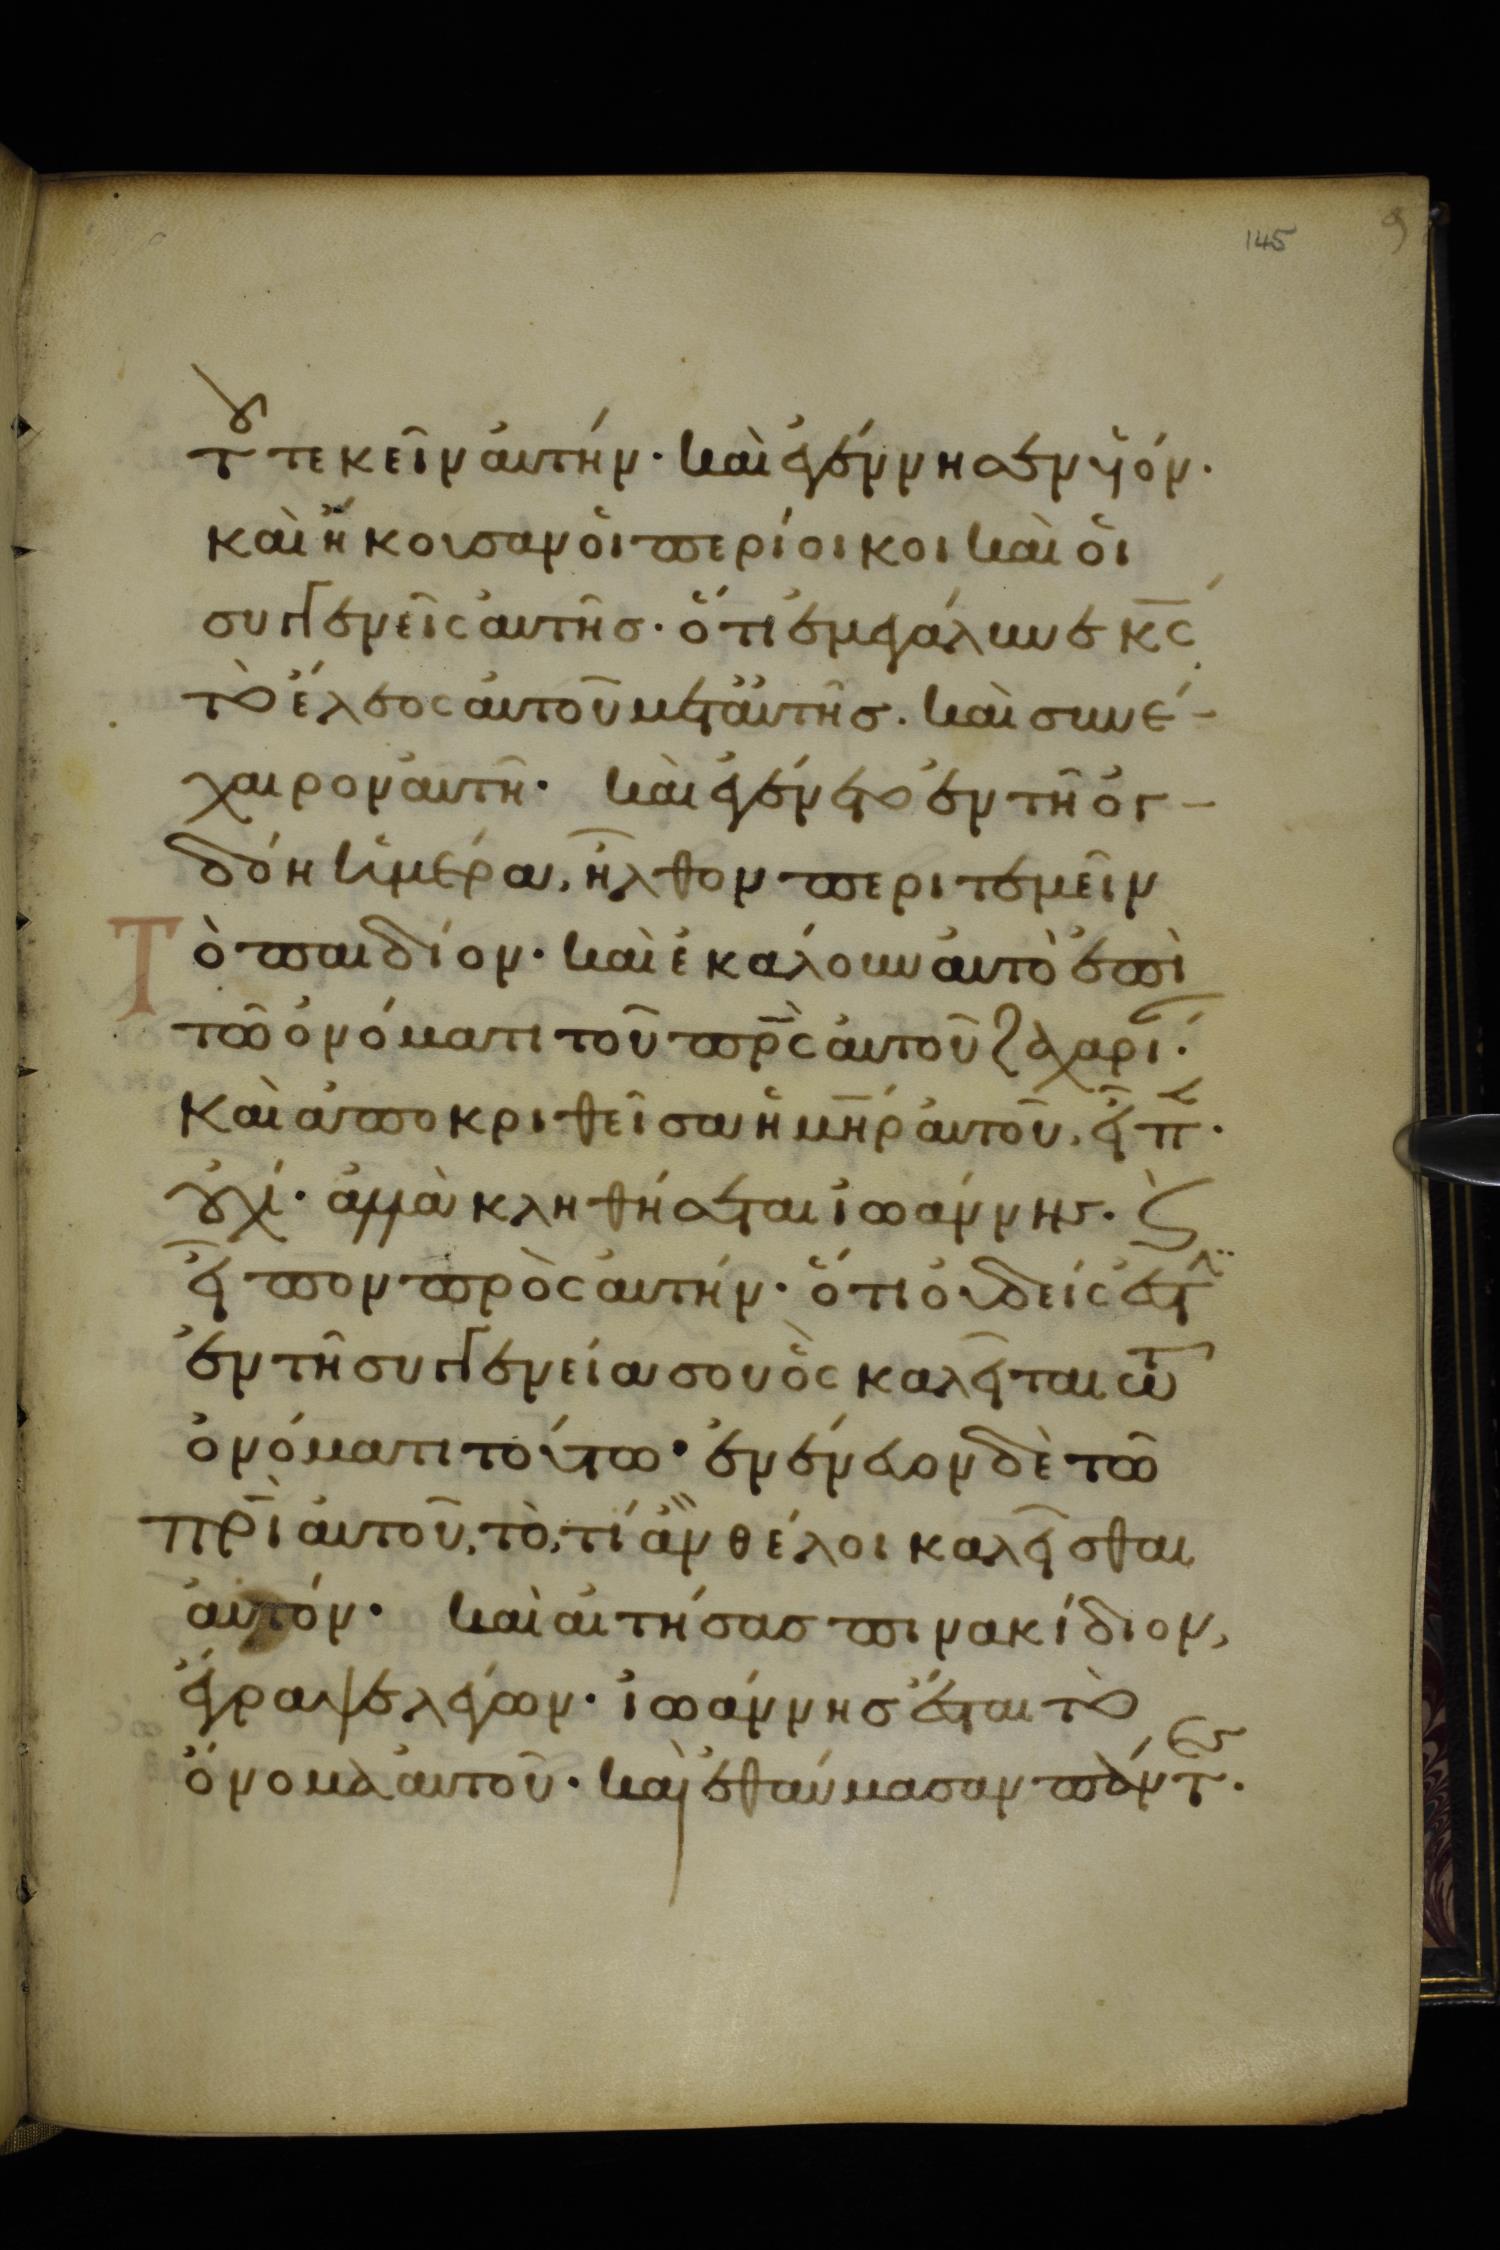 145
τοῦ τεκεῖν αὐτήν· καὶ ἐγέννησεν υἱόν·
καὶ ἤκουσαν οἱ περίοικοι καὶ οἱ
συγγενεῖς αὐτῆς· ὅτι ἐμεγάλυνε κς
τὸ ἔλεος αὐτοῦ μετ' αὐτῆς. καὶ συνέ-
χαιρον αὐτῆ· καὶ ἐγένετο ἐν τῆ ὀγ-
δόη ἡμέρα, ἦλθον περιτεμεῖν
Τὸ παιδίον· καὶ ἐκάλουν αὐτὸ ἐπὶ
τῶ ὀνόματι τοῦ πρς αὐτοῦ ζαχαρί·
Καὶ ἀποκριθεῖσα ἡ μηρ αὐτοῦ, εἶπ·
οὐχί· ἀλλὰ κληθήσεται ἰωάννης· καὶ
εἶπον πρὸς αὐτήν· ὅτι οὐδείς ἐστιν
ἐν τῆ συγγενεία σου ὃς καλεῖται τῶ
ὀνόματι τούτω· ἐνένευον δὲ τῶ
πρὶ αὐτοῦ, τὸ, τί ἂν θέλοι καλεῖσθαι
αὐτόν· καὶ αἰτήσας πινακίδιον,
ἔγραψε λέγων· ἰωάννης ἔσται τὸ
ὄνομα αὐτοῦ· καὶ ἐθαύμασαν πάντες·